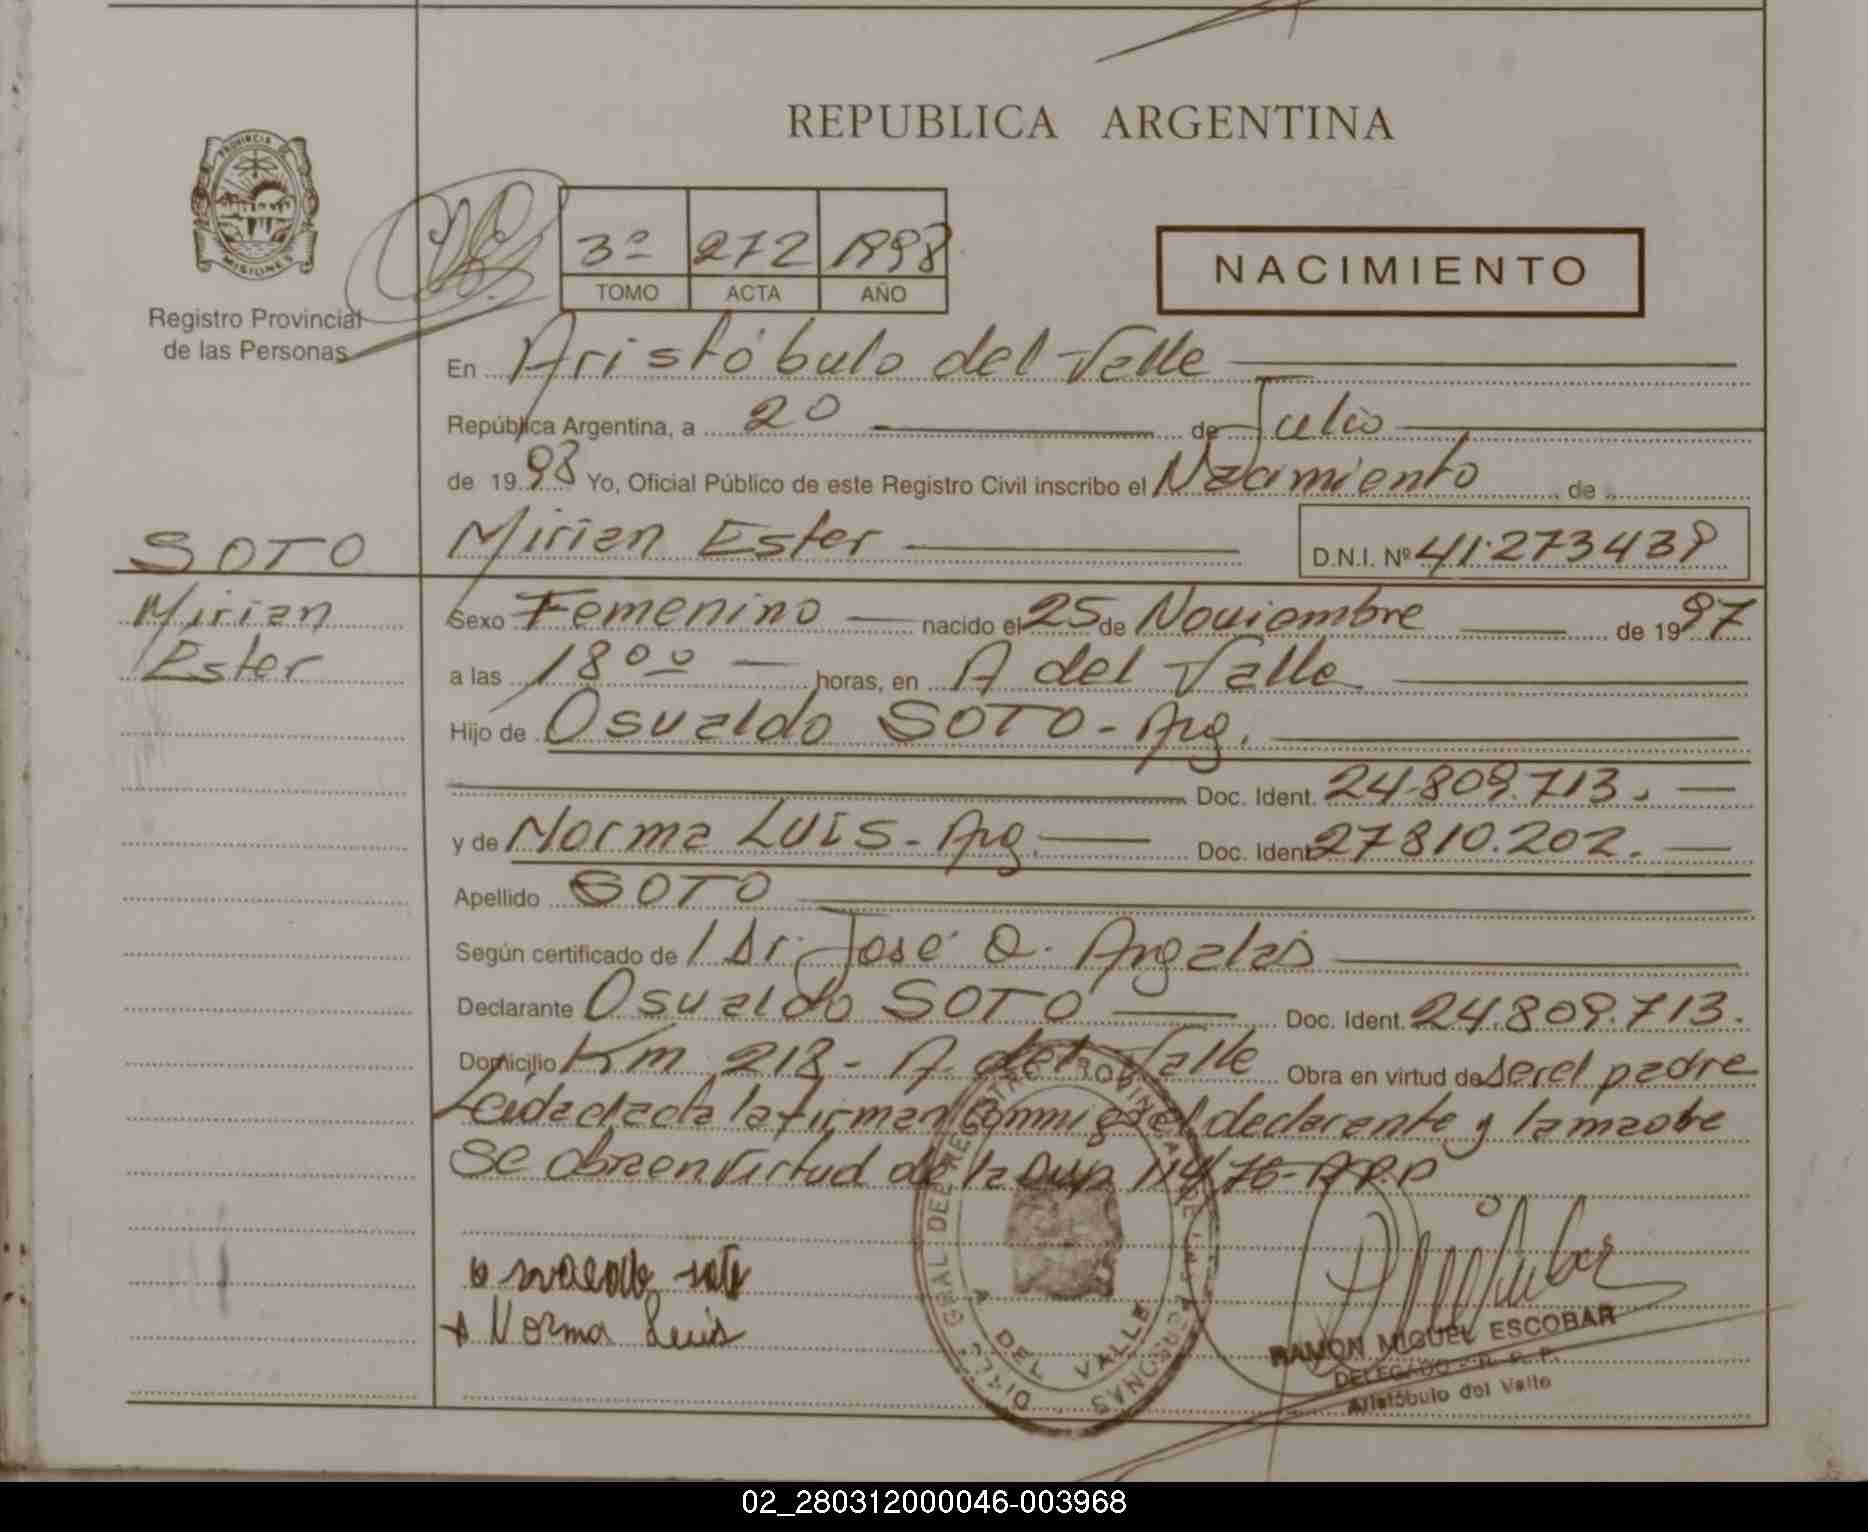 REPUBLICA ARGENTINA
PROVINCIA DE
MISIONES
Registro Provincial
de las Personas
3º 272 1998
TOMO ACTA AÑO
NACIMIENTO
En Aristóbulo del Valle
República Argentina, a 20 de Julio
de 1998 Yo, Oficial Público de este Registro Civil inscribo el Nacimiento de
SOTO
Mirian Ester D.N.I. Nº 41.273439
Mirian
Ester
Sexo Femenino nacido el 25 de Noviembre de 1997
a las 18ºº horas, en A del Valle
Hijo de Osvaldo SOTO - Arg.
Doc. Ident. 24.809.713.
y de Norma LUIS - Arg. Doc. Ident. 27810.202.
Apellido SOTO
Según certificado de / Dr. José O.
Declarante Osvaldo SOTO Doc. Ident. 24.809.713.
Domicilio Km 218 - A. del Valle Obra en virtud de ser el padre
Leida el acta la firman conmigo el declarante y la madre
Se obra en virtud de la Disp 114/76- R.P.P
osvaldo soto
Norma Luis
A DEL VALLE
RAMON MIGUEL ESCOBAR
DELEGADO - R. P. P.
Aristóbulo del Valle
02_280312000046-003968